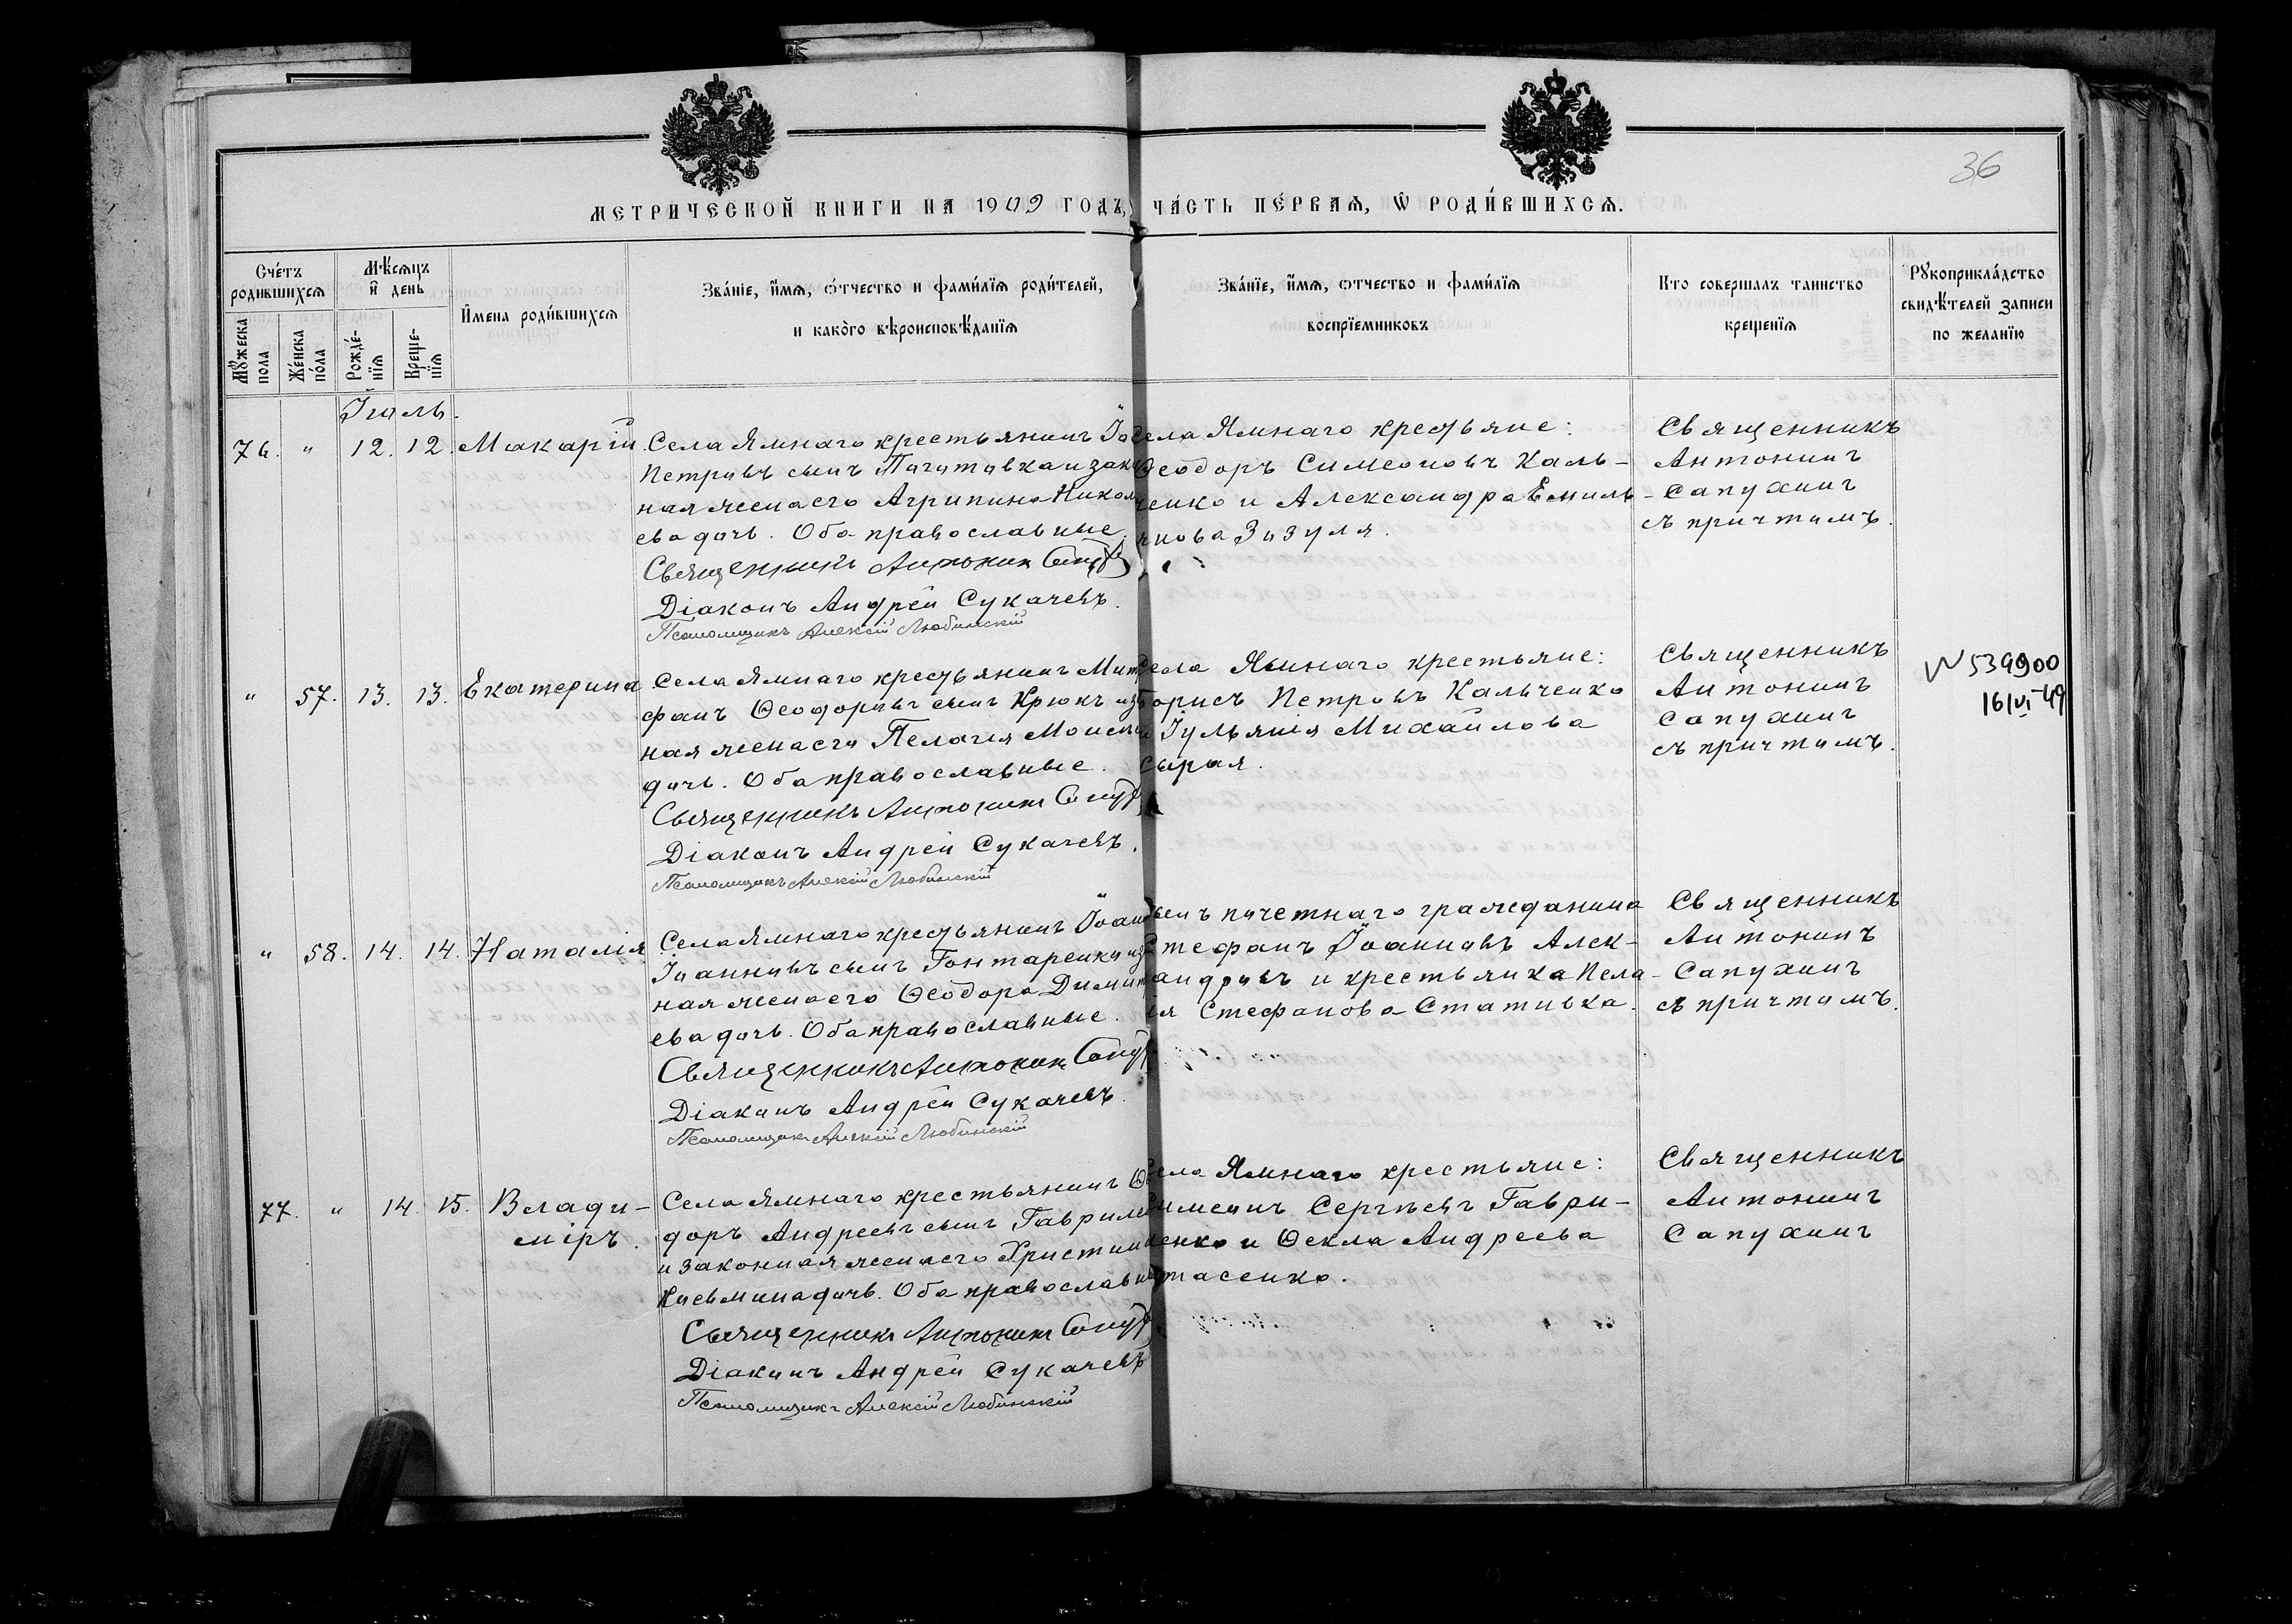 36
МЕТРИЧЕСКОЙ КНИГИ НА 1909 ГОДЪ, ЧА́СТЬ ПЕ́РВАЯ, Ѡ РОДИ́ВШИХСЯ.
Сче́тъ родившихся
Мѣсяцъ и день
Имена роди́вшихся
Зва́нїе, и́мя, о́тчество и фами́лїя роди́телей,
и како́го вѣроисповѣ́данїя
Зва́нїе, и́мя, отчество и фами́лїя
воспрїемниковъ
Кто совершалъ таинство
крещенїя
Рꙋкоприкла́дство
свидѣ́телей записи
по желанїю
Мꙋжеска пола
Же́нска по́ла
Рожде́нїя
Креще́нїя
Іюль.
76. " 12. 12. Макарій
Села Ямнаго крестьянинъ
Петровъ сынъ
ная жена его Агрипина
ева дочь. Оба православные.
Священникъ Антонин
Діаконъ Андрей Сукачевъ.
Псаломщикъ Алексій Любинскій
Села Ямнаго крестьяне:
Ѳеодоръ Симеоновъ Каль-
ченко и Александра Емиль-
янова Зозуля.
Священникъ
Антонинъ
Сапухинъ
съ причтомъ.
" 57. 13. 13. Екатерина
Села Ямнаго крестьянинъ
фанъ Ѳеодоровъ сынъ Крюкъ
ная жена его Пелагія
дочь. Оба православные.
Священникъ Антонин
Діаконъ Андрей Сукачевъ.
Псаломщикъ Алексій Любинскій
Села Ямнаго крестьяне:
Борисъ Петровъ Кальченко
и Іульянія Михайлова
Сырая.
Священникъ
Антонинъ
Сапухинъ
съ причтомъ.
N 539900
16/VI-49
" 58. 14. 14. Наталія
Села Ямнаго крестьянинъ
Іоанновъ сынъ Гонтаренко
ная жена его Ѳеодора
ева дочь. Оба православные.
Священникъ Антонин
Діаконъ Андрей Сукачевъ.
Псаломщикъ Алексій Любинскій
почетнаго гражданина
Стефанъ Іоанновъ Алек-
сандровъ и крестьянка Пела-
гія Стефанова Стативка.
Священникъ
Антонинъ
Сапухинъ
съ причтомъ.
77. " 14. 15. Влади-
міръ.
Села Ямнаго крестьянинъ Ѳео
доръ Андреевъ сынъ
и законная жена его
Косьмина дочь. Оба
Священникъ Антонин
Діаконъ Андрей Сукачевъ
Псаломщикъ Алексій Любинскій
Села Ямнаго крестьяне:
Симеонъ Сергѣевъ Гаври-
ленко и Ѳекла Андреева
Священникъ
Антонинъ
Сапухинъ